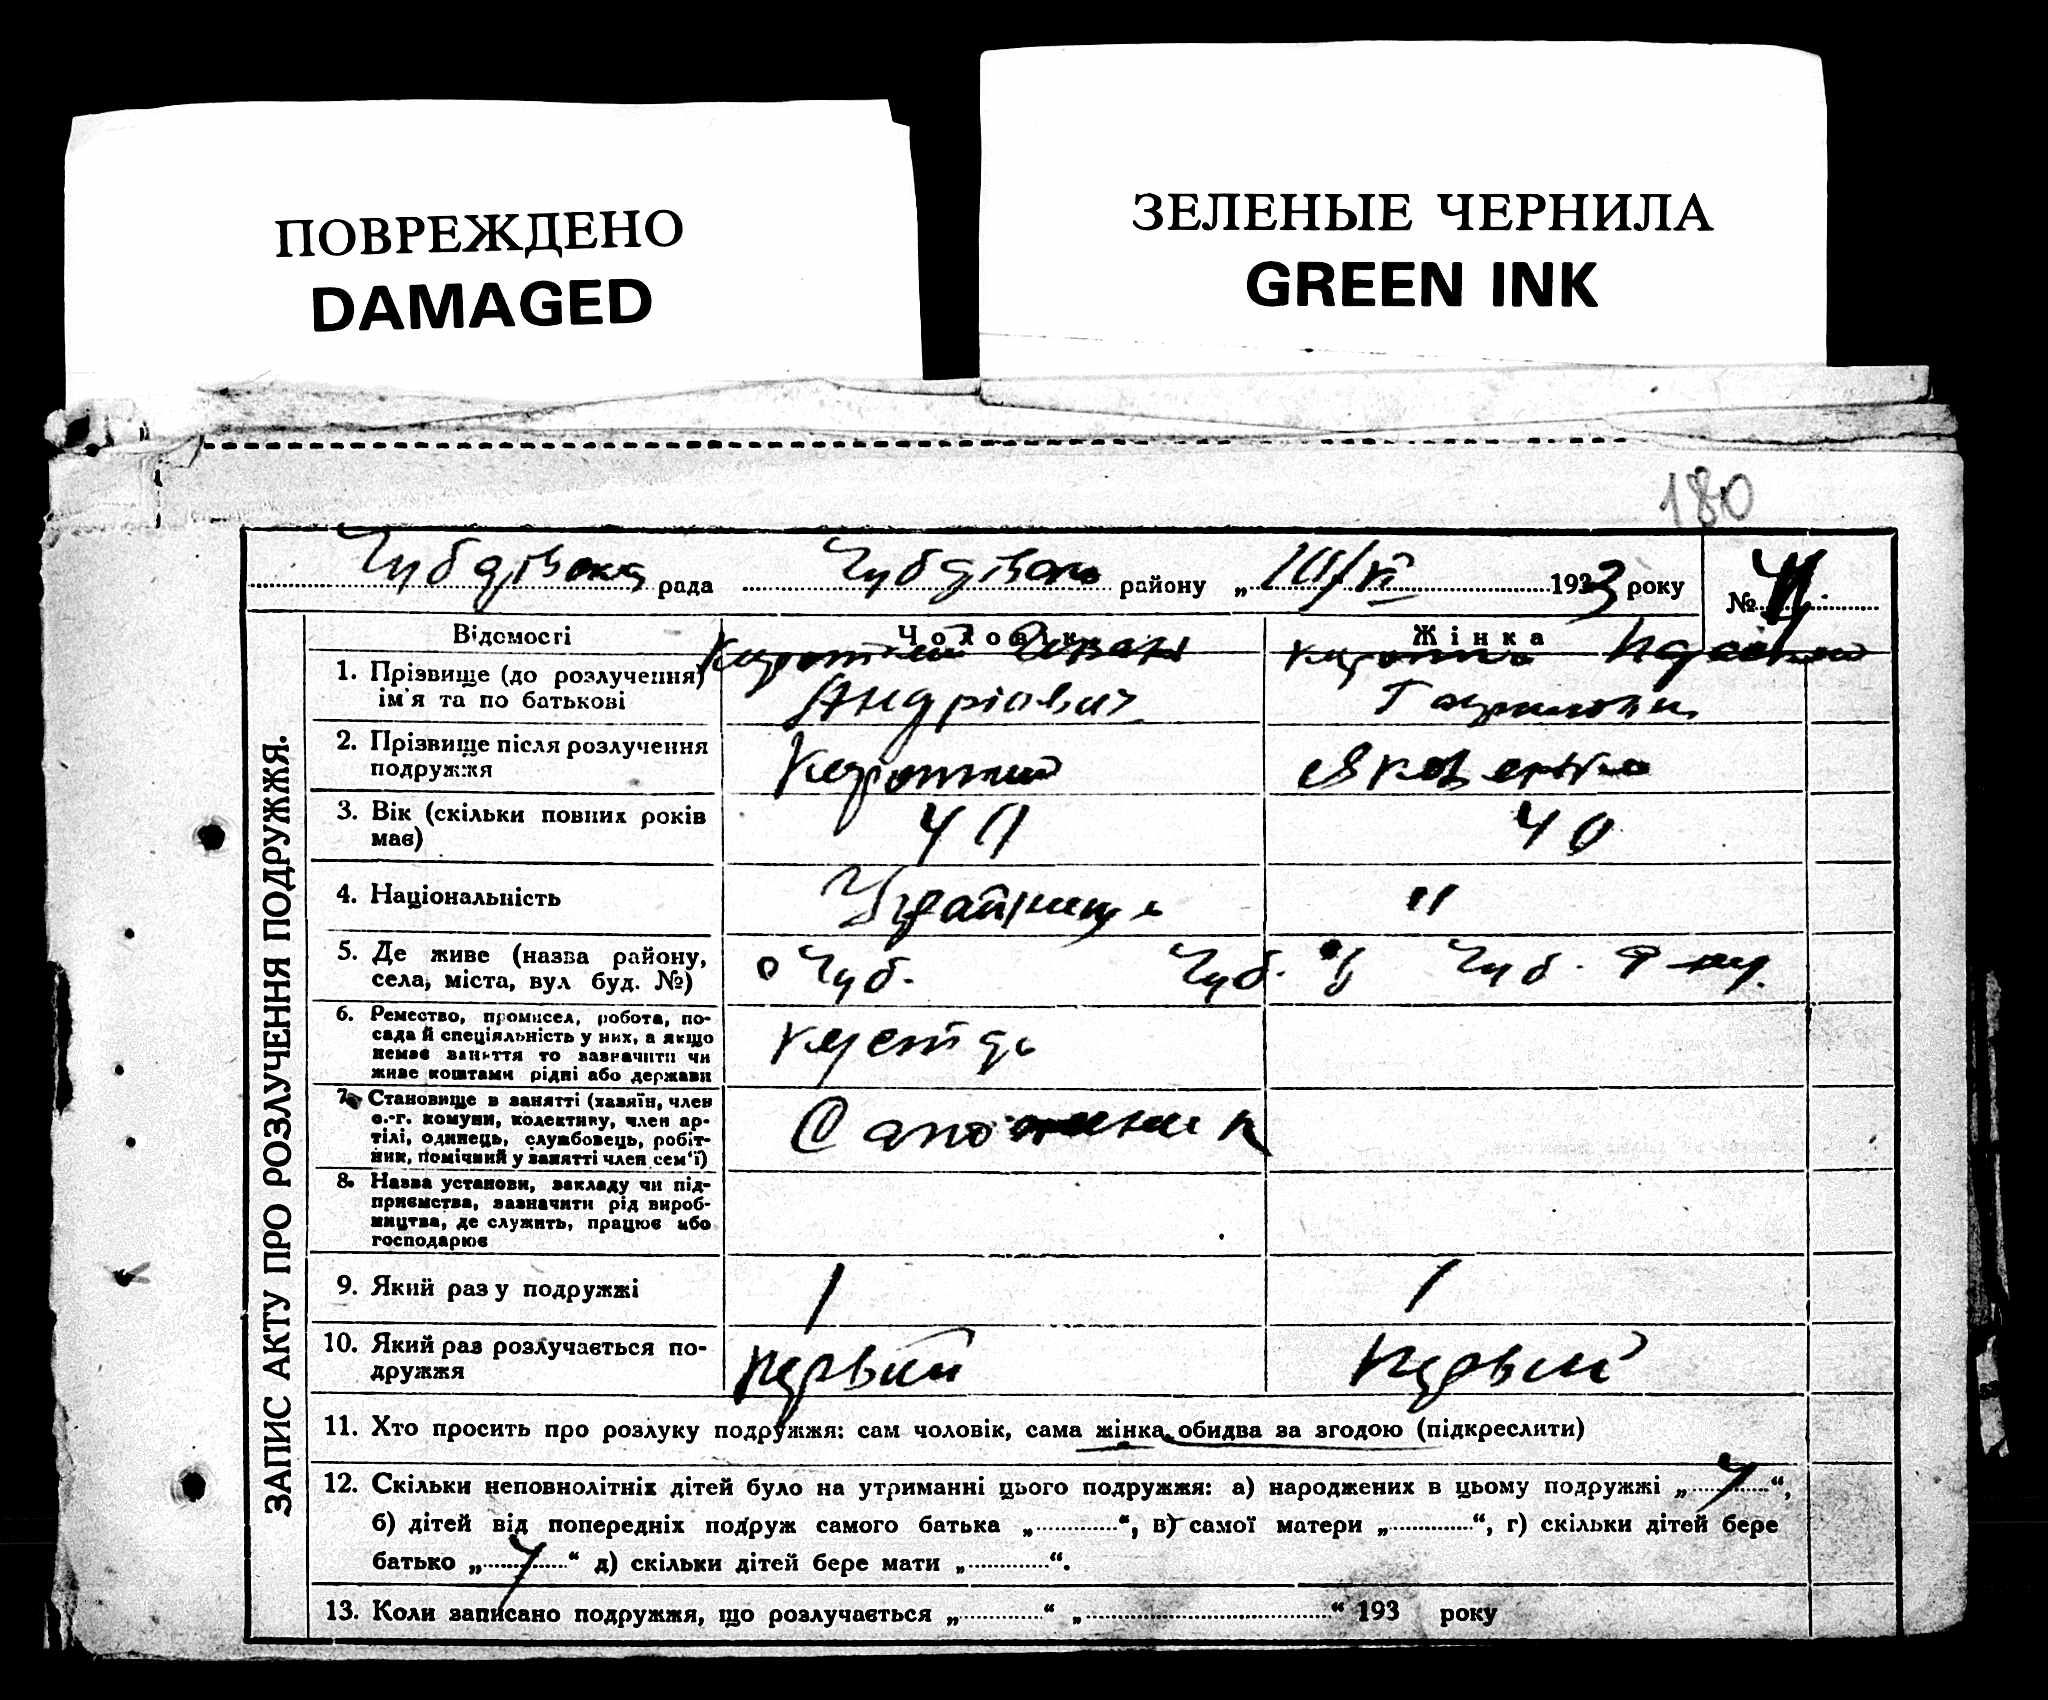 ПОВРЕЖДЕНО
DAMAGED
ЗЕЛЕНЫЕ ЧЕРНИЛА
GREEN INK
180
рада району „ 1933 року
№
ЗАПИС АКТУ ПРО РОЗЛУЧЕННЯ ПОДРУЖЖЯ.
Відомості Чоловік Жінка
1. Прізвище (до розлучення) Іван
ім'я та по батькові Андріович
2. Прізвище після розлучення
подружжя Короткий Яковенко
3. Вік (скільки повних років
має) 40 40
4. Національність "
5. Де живе (назва району,
села, міста, вул буд. №) Чуб. Чуб. Чуб.
6. Ремество, промисел, робота, по-
сада й спеціяльність у них, а якщо
немає заняття то зазначити чи
живе коштами рідні або держави
7. Становище в занятті (хазяїн, член
с.-г. комуни, колективу, член ар-
тілі, одинець, службовець, робіт-
ник, помічний у занятті член сем'ї)
8. Назва установи, закладу чи під-
приємства, зазначити рід вироб-
ництва, де служить, працює або
господарює
9. Який раз у подружжі 1 1
10. Який раз розлучається по-
дружжя первий первий
11. Хто просить про розлуку подружжя: сам чоловік, сама жінка, обидва за згодою (підкреслити)
12. Скільки неповнолітніх дітей було на утриманні цього подружжя: а) народжених в цьому подружжі „ “,
б) дітей від попередніх подруж самого батька „ “, в) самої матери „ “, г) скільки дітей бере
батько „ “ д) скільки дітей бере мати „ “.
13. Коли записано подружжя, що розлучається „ “ „ “ 193 року